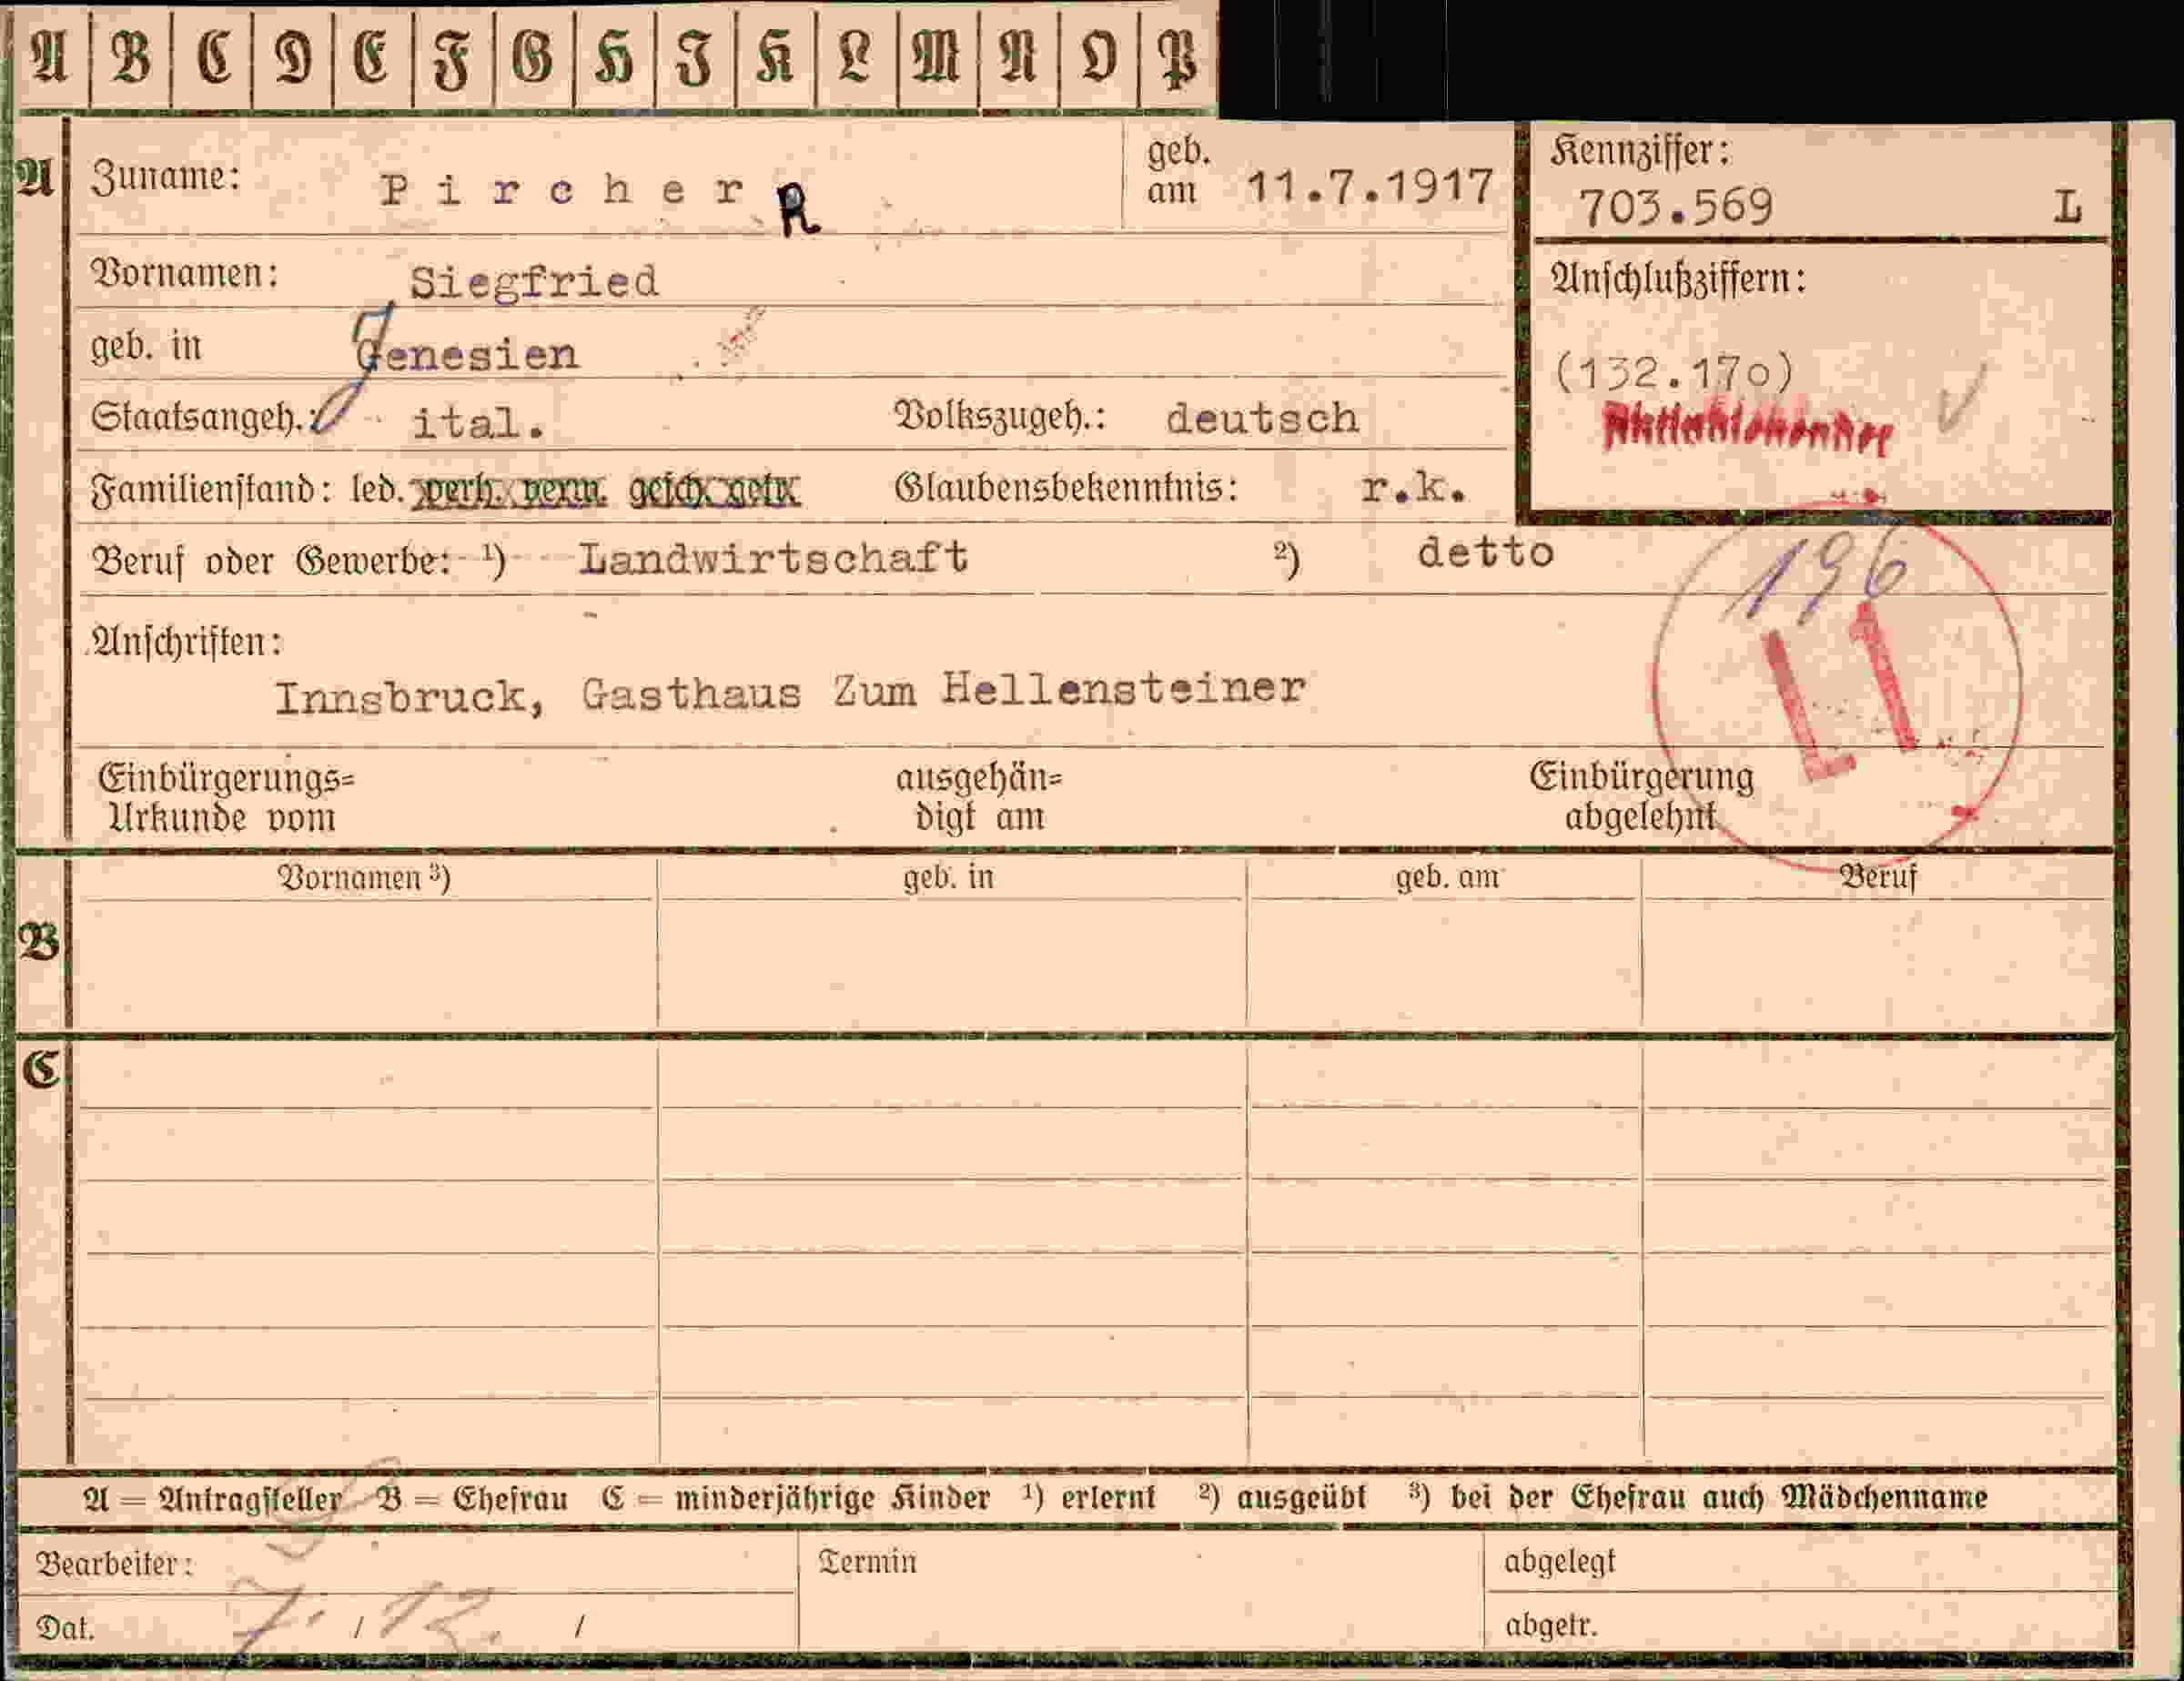 A B C D E F G H I K L M N O P
A Zuname: Pircher R geb. am 11.7.1917
Kennziffer: 703.569 L
Vornamen: Siegfried
Anschlußziffern:
geb. in Genesien
(132.170)
Staatsangeh.: ital. Volkszugeh.: deutsch
Familienstand: led. verh. verw. gesch. getr. Glaubensbekenntnis: r.k.
Beruf oder Gewerbe: 1) Landwirtschaft 2) detto
196
Anschriften:
Innsbruck, Gasthaus Zum Hellensteiner
Einbürgerungs= ausgehän= Einbürgerung
Urkunde vom digt am abgelehnt
Vornamen 3) geb. in geb. am Beruf
B
C
A = Antragsteller B = Ehefrau C = minderjährige Kinder 1) erlernt 2) ausgeübt 3) bei der Ehefrau auch Mädchenname
Bearbeiter: Termin abgelegt
Dat. 7. / 12. / abgetr.